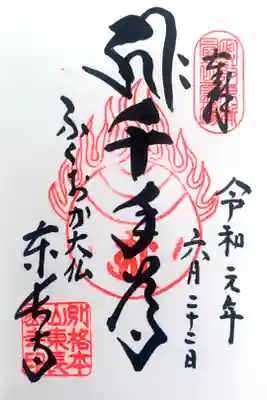 奉拝
令和元年
六月二十二日
千手尊
ふくおか大仏
東長寺
別格本
山東長